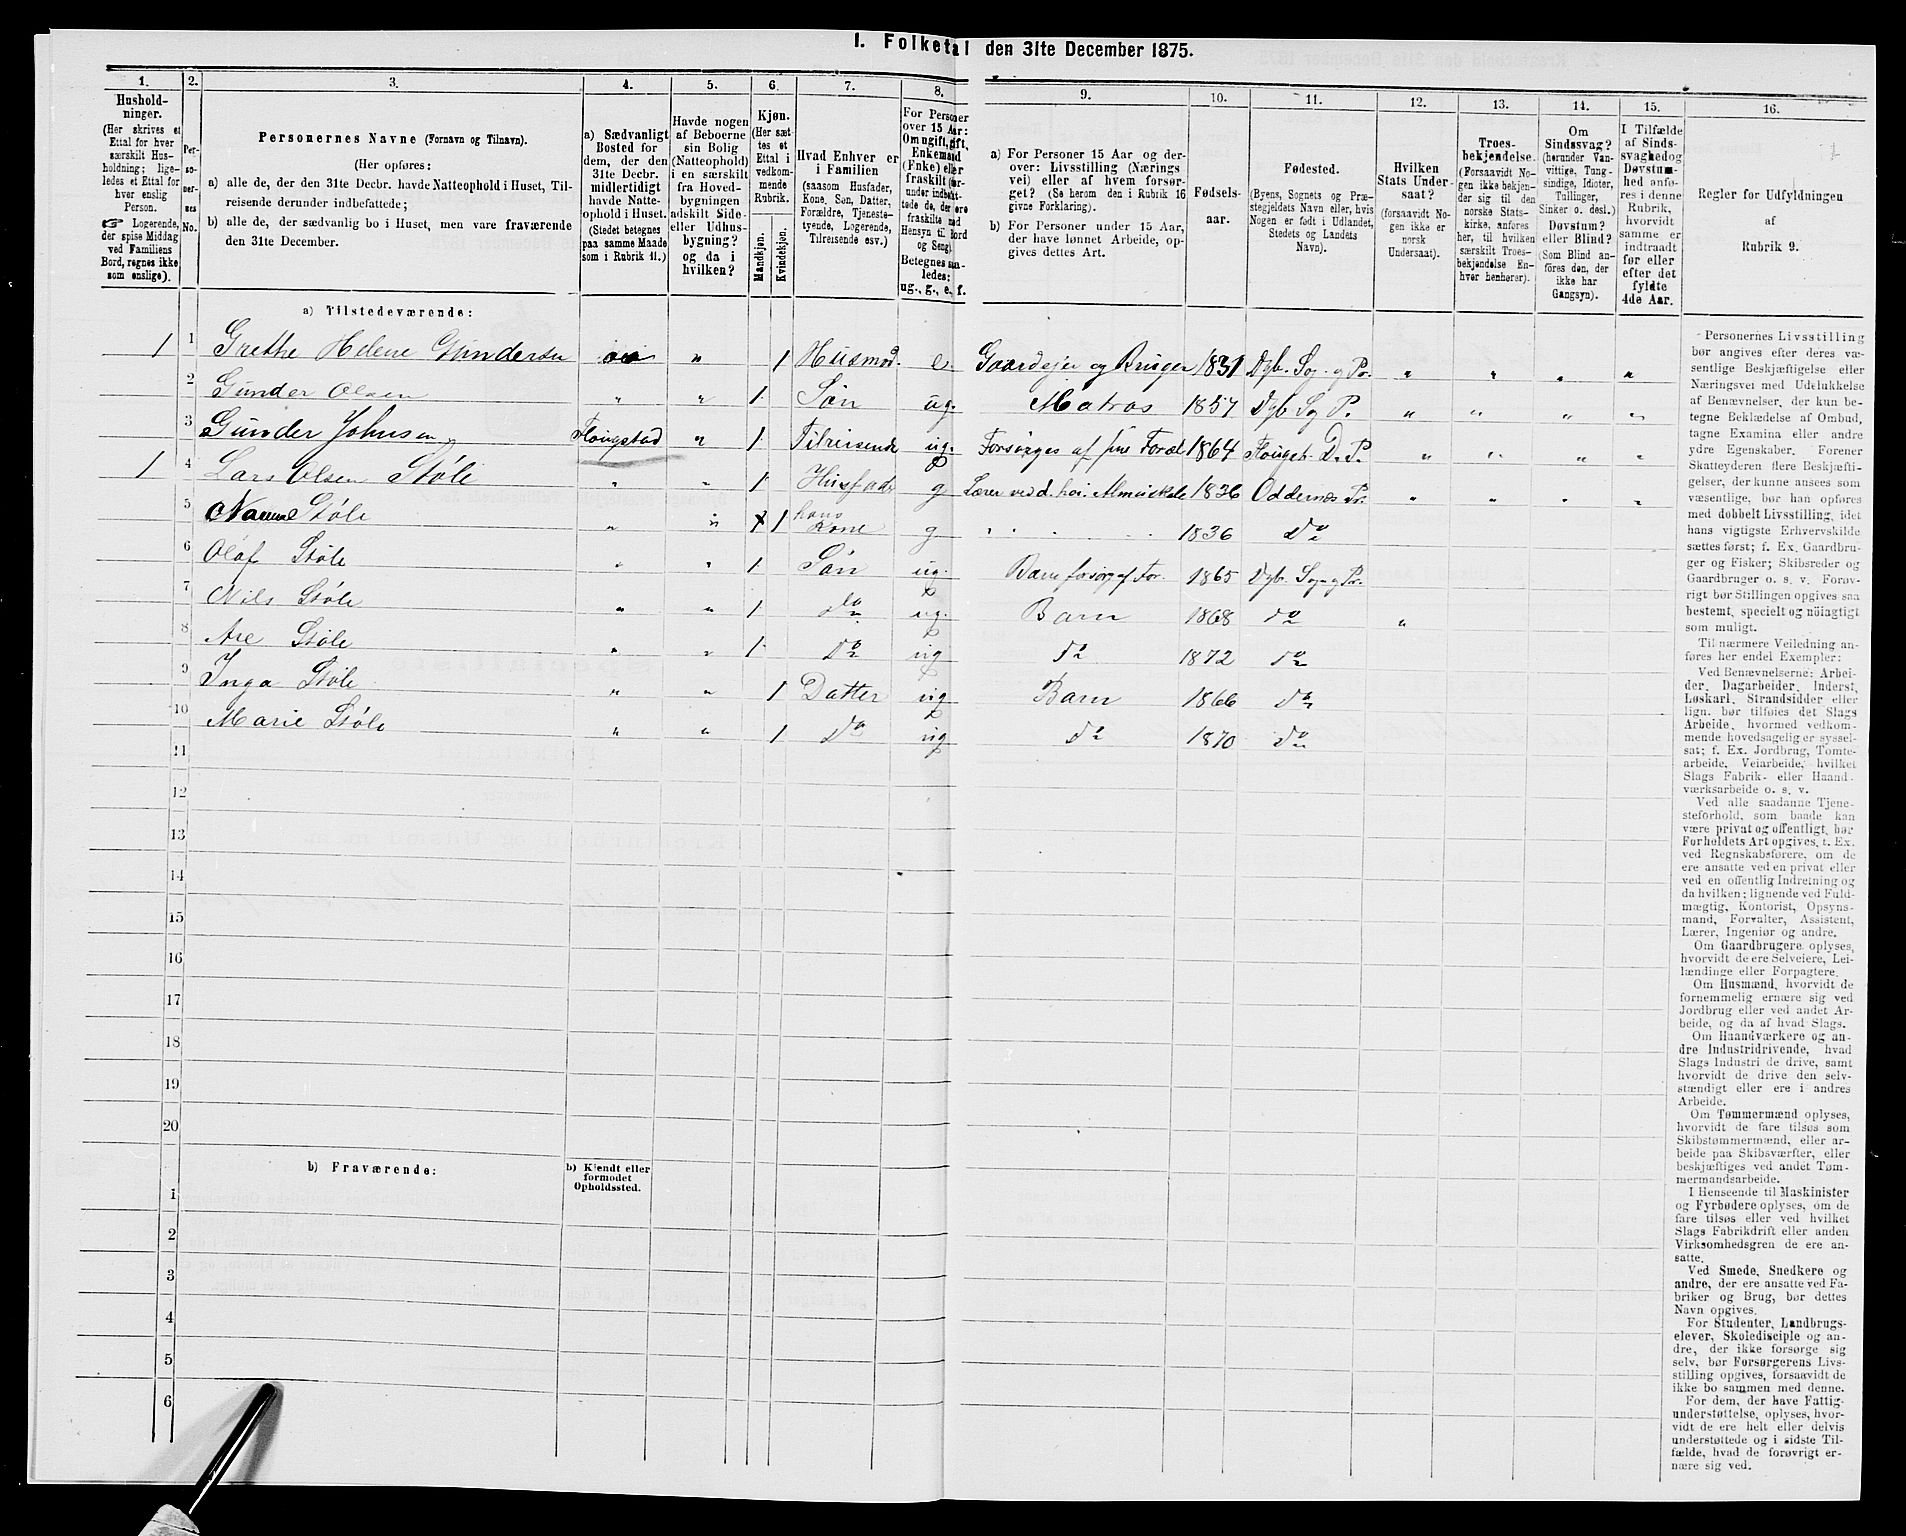 I. Folketal den 31te December 1875.
1. 2. 3. 4. 5. 6. 7. 8. 9. 10. 11. 12. 13. 14. 15. 16.
Hushold-
ninger.
(Her skrives et
Ettal for hver
særskilt Hus-
holdning; lige-
ledes et Ettal for
hver enslig
Person.
☞ Logerende,
der spise Middag
ved Familiens
Bord, regnes ikke
som enslige).
Per-
so-
ner-
nes
No.
Personernes Navne (Fornavn og Tilnavn).
(Her opføres:
a) alle de, der den 31te Decbr. havde Natteophold i Huset, Til-
reisende derunder indbefattede;
b) alle de, der sædvanlig bo i Huset, men vare fraværende
den 31te December.
a) Sædvanligt
Bosted for
dem, der den
31te Decbr.
midlertidigt
havde Natte-
ophold i Huset.
(Stedet betegnes
paa samme Maade
som i Rubrik 11.)
Havde nogen
af Beboerne
sin Bolig
(Natteophold)
i en særskilt
fra Hoved-
bygningen
adskilt Side-
eller Udhus-
bygning?
og da i
hvilken?
Kjøn.
(Her sæt-
tes et
Ettal i
vedkom-
mende
Rubrik.
Mandkjøn.
Kvindekjøn.
Hvad Enhver er
i Familien
(saasom Husfader,
Kone, Søn, Datter,
Forældre, Tjeneste-
tyende, Logerende,
Tilreisende osv.)
For Personer
over 15 Aar:
Om ugift, gift,
Enkemand
(Enke) eller
fraskilt (her-
under indbefat-
tede de, der ere
fraskilte med
Hensyn til Bord
og Seng).
Betegnes saa-
ledes:
ug., g., e., f.
a) For Personer 15 Aar og der-
over: Livsstilling (Nærings
vei) eller af hvem forsør-
get? (Se herom den i Rubrik 16
givne Forklaring).
b) For Personer under 15 Aar,
der have lønnet Arbeide, op-
gives dettes Art.
Fødsels-
aar.
Fødested.
(Byens, Sognets og Præ-
stegjeldets Navn eller, hvis
Nogen er født i Udlandet,
Stedets og Landets
Navn).
Hvilken
Stats Under-
saat?
(forsaavidt No-
gen ikke er
norsk
Undersaat).
Troes-
bekjendelse.
(Forsaavidt No-
gen ikke bekjen-
der sig til den
norske Stats-
kirke, anføres
her, til hvilken
særskilt Troes-
bekjendelse En-
hver henhører).
Om
Sindssvag?
(herunder Van-
vittige, Tung-
sindige, Idioter,
Tullinger,
Sinker o. desl.)
Døvstum?
eller Blind?
(Som Blind an-
føres den, der
ikke har
Gangsyn).
I Tilfælde
af Sinds-
svaghed og
Døvstum-
hed anfø-
res i denne
Rubrik,
hvorvidt
samme er
indtraadt
før eller
efter det
fyldte
4de Aar.
Regler for Udfyldningen
af
Rubrik 9.
a) Tilstedeværende:
1 1 Grethe Helene Gundersen " 1 Husmod. e. Gaardejer og Bruger 1831 Dyb. Sog. og Pr. " " " "
2 Gunder Olsen " " 1 Søn ug. Matros 1857 Dyb. Sog P. " " " "
3 Gunder Johnsen " 1 Tilreisende ug. Forsørges af sine Foræl 1864 D. P. " " " "
1 4 Lars Olsen Støle " " 1 Husfader g Lærer ved d. høi. Almuskole 1836 Oddernes Pr. " " " "
5 Støle " " 1 hans Kone g " 1836 Do
6 Olaf Støle " " 1 Søn ug. Barn forsørg. af For. 1865 Dyb. Sog. og Pr.
7 Nils Støle " " 1 do ug. Barn 1868 do "
8 Are Støle " " 1 do ug do 1872 do
9 Inga Støle " " 1 Datter ug Barn 1866 do
10 Marie Støle " " 1 do ug do 1870 do
11
12
13
14
15
16
17
18
19
20
b) Fraværende:
b) Kjendt eller
formodet
Opholdssted.
1
2
3
4
5
6
Personernes Livsstilling
bør angives efter deres væ-
sentlige Beskjæftigelse eller
Næringsvei med Udelukkelse
af Benævnelser, der kun be-
tegne Beklædelse af Ombud,
tagne Examina eller andre
ydre Egenskaber. Forener
Skatteyderen flere Beskjæfti-
gelser, der kunne ansees som
væsentlige, bør han opføres
med dobbelt Livsstilling, idet
hans vigtigste Erhvervskilde
sættes først; f. Ex. Gaardbru-
ger og Fisker; Skibsreder og
Gaardbruger o. s. v. Forøv-
rigt bør Stillingen opgives saa
bestemt, specielt og nöiagtigt
som muligt.
Til nærmere Veiledning an-
føres her endel Exempler:
Ved Benævnelserne: Arbei-
der, Dagarbeider, Inderst,
Løskarl, Strandsidder eller
lign. bør tilføies det Slags
Arbeide, hvormed vedkom-
mende hovedsagelig er syssel-
sat; f. Ex. Jordbrug, Tomte-
arbeide, Veiarbeide, hvilket
Slags Fabrik- eller Haand-
værksarbeide o. s. v.
Ved alle saadanne Tjene-
steforhold, som baade kan
være privat og offentligt, bør
Forholdets Art opgives, t. Ex.
ved Regnskabsførere, om de
ere ansatte ved en privat eller
ved en offentlig Indretning og
da hvilken; lignende ved Fuld-
mægtig, Kontorist, Opsyns-
mand, Forvalter, Assistent,
Lærer, Ingeniør og andre.
Om Gaardbrugere oplyses,
hvorvidt de ere Selveiere, Lei-
lændinge eller Forpagtere.
Om Husmænd, hvorvidt de
fornemmelig ernære sig ved
Jordbrug eller ved andet Ar-
beide, og da af hvad Slags.
Om Haandværkere og an-
dre Industridrivende, hvad
Slags Industri de drive, samt
hvorvidt de drive den selv-
stændigt eller ere i andres
Arbeide.
Om Tømmermænd oplyses,
hvorvidt de fare tilsøs som
Skibstømmermænd, eller ar-
beide paa Skibsværfter, eller
beskjæftiges ved andet Tøm-
mermandsarbeide.
I Henseende til Maskinister
og Fyrbødere oplyses, om de
fare tilsøs eller ved hvilket
Slags Fabrikdrift eller anden
Virksomhedsgren de ere an-
satte.
Ved Smede, Snedkere og
andre, der ere ansatte ved Fa-
briker og Brug, bør dettes
Navn opgives.
For Studenter, Landbrugs-
elever, Skoledisciple og an-
dre, der ikke forsørge sig
selv, bør Forsørgerens Livs-
stilling opgives, forsaavidt de
ikke bo sammen med denne.
For dem, der have Fattig-
understøttelse, oplyses, hvor-
vidt de ere helt eller delvis
understøttede og i sidste Til-
fælde, hvad de forøvrigt er-
nære sig ved.